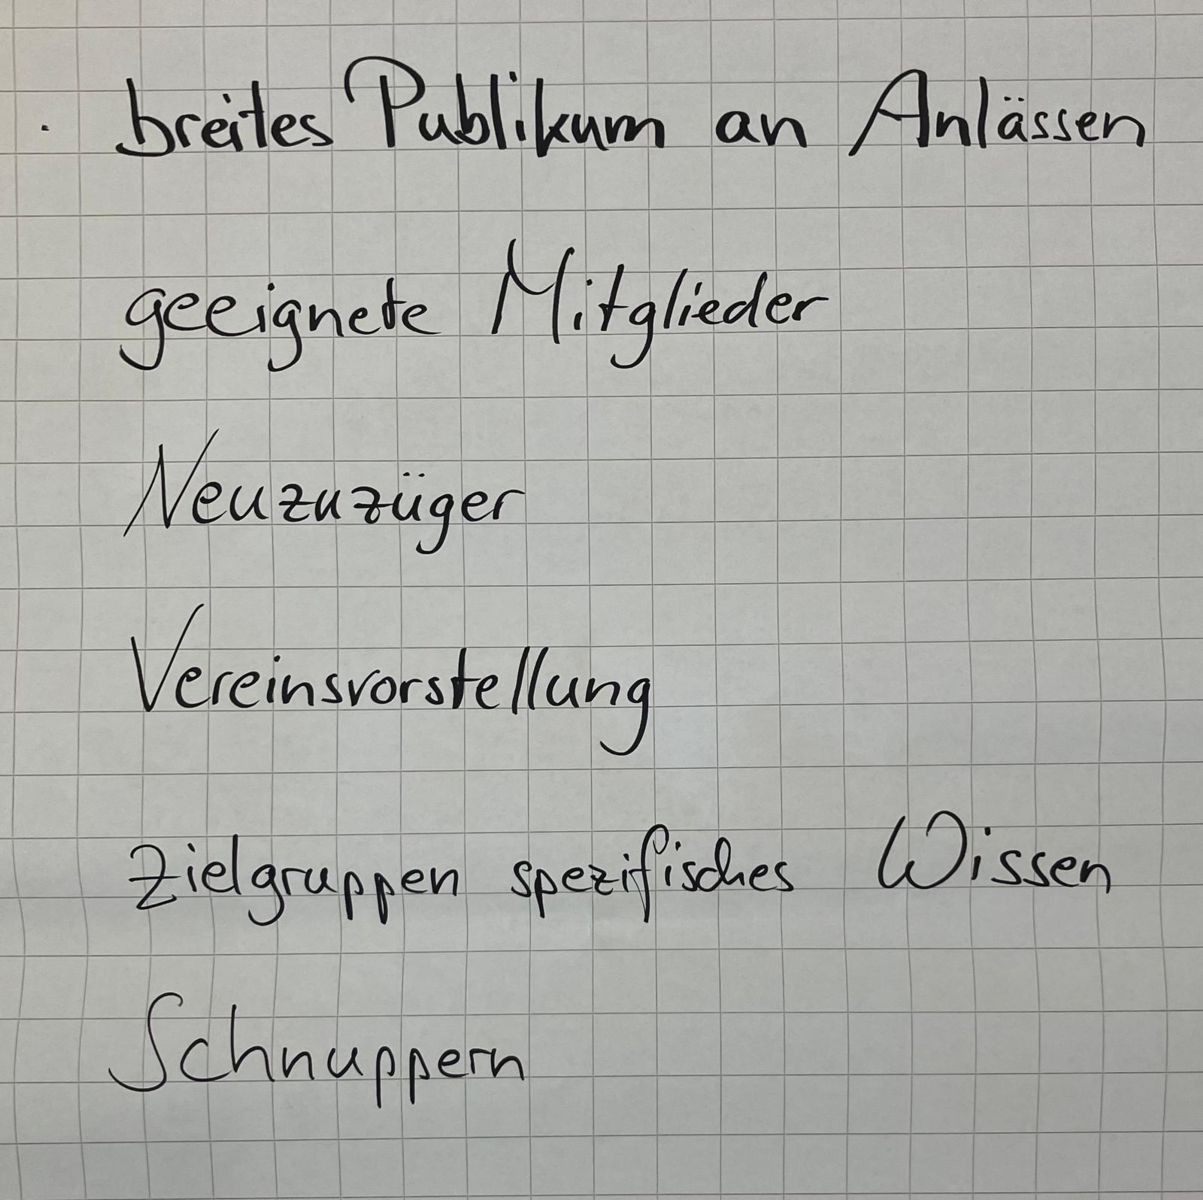 · breites Publikum an Anlässen
geeignete Mitglieder
Neuzuzüger
Vereinsvorstellung
Zielgruppen spezifisches Wissen
Schnuppern